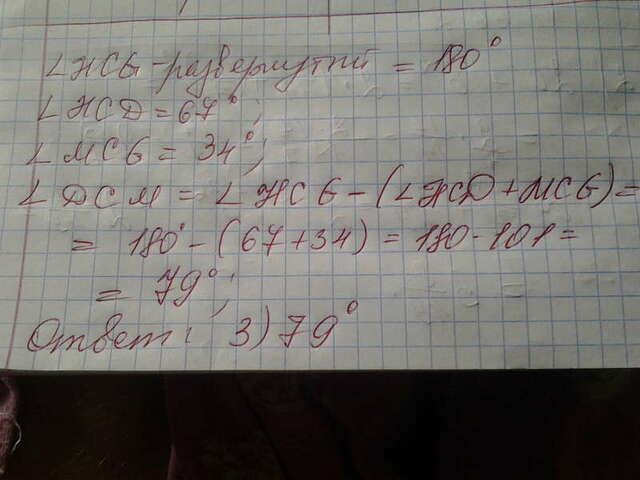 ∠HCG - развернутый = 180°
∠HCD = 67°;
∠MCG = 34°;
∠DCM = ∠HCG - (∠HCD + MCG) =
= 180° - (67 + 34) = 180 - 101 =
= 79°;
Ответ: 3) 79°